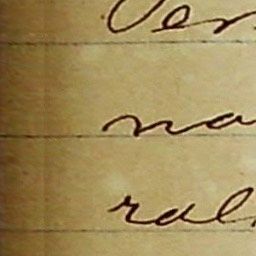 Ver
na
ral